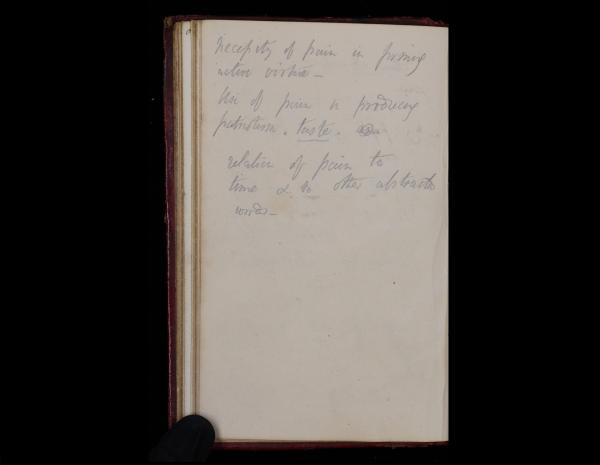 Necessity of pain in forming
active virtue —
Use of pain in producing
patriotism. taste.
relation of pain to
time & to other abstract
words —